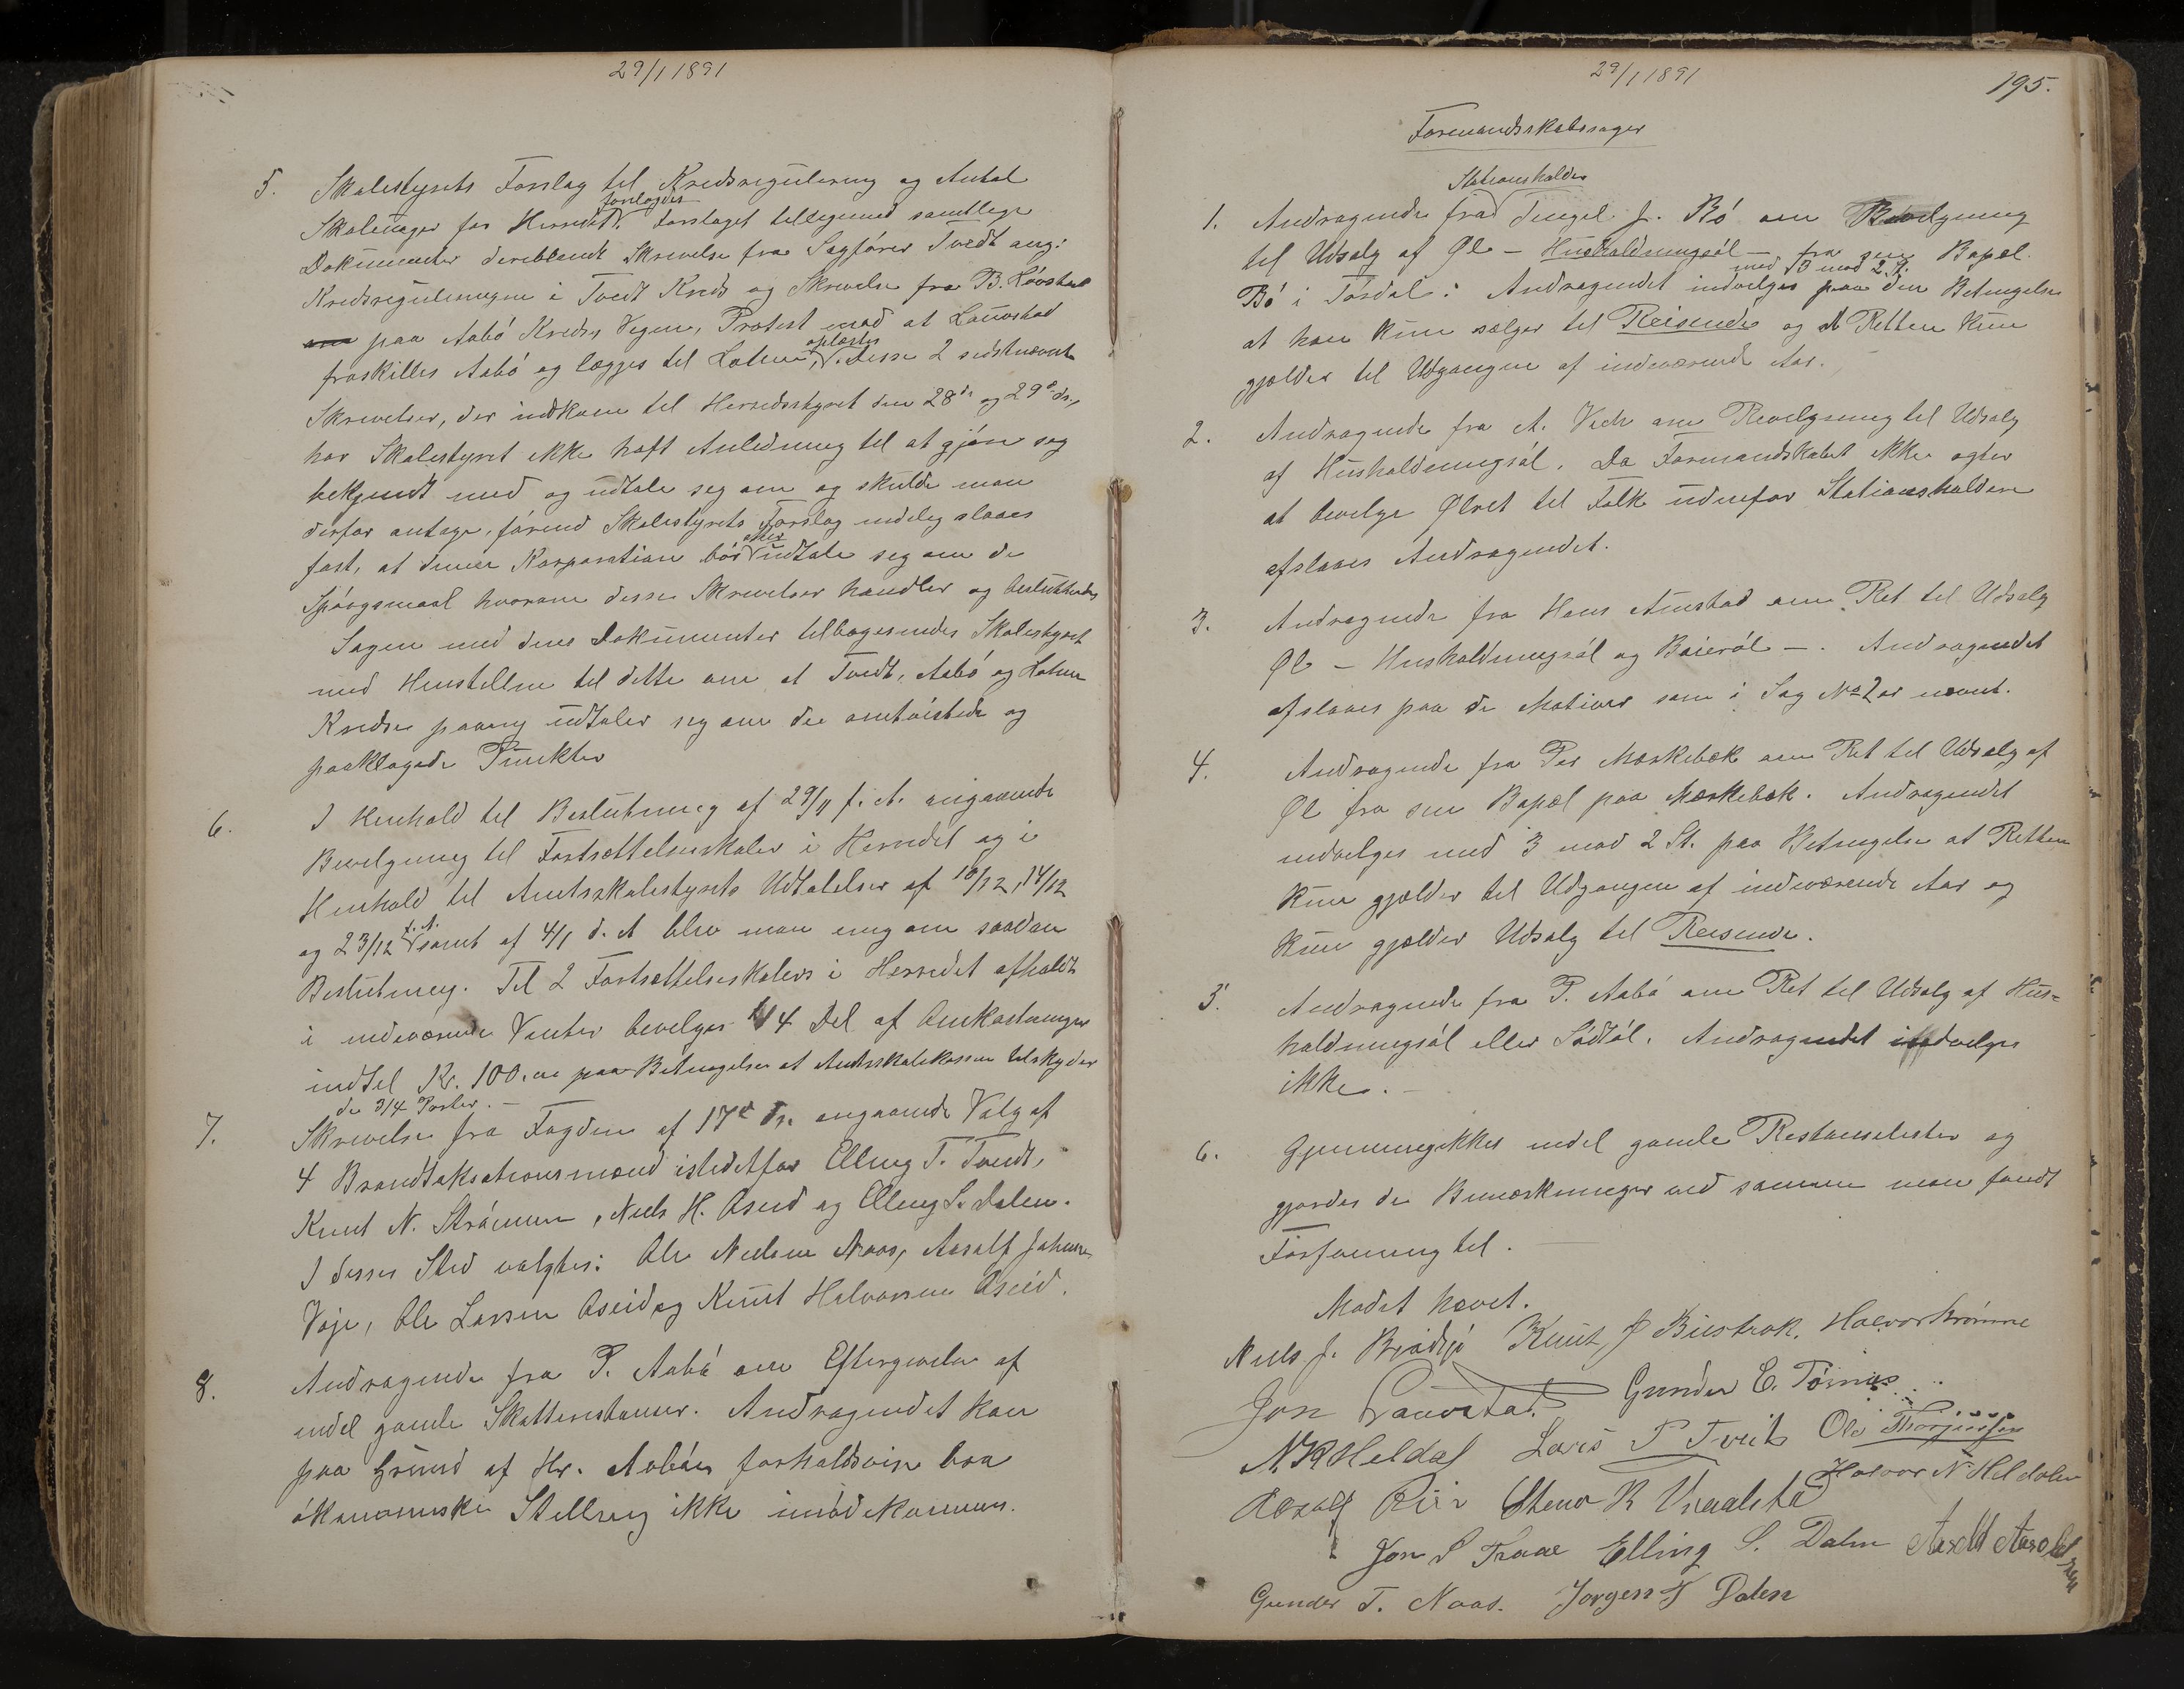 29/1 1891
5. Skolestyrets Forslag til Kredsregulering og Antal
Skoleuger for Herredet forelagdes. Forslaget tilligemed samtlige
Dokumenter deriblandt Skrivelse fra Sagfører Tvedt ang.
Kredsreguleringen i Tvedt Kreds og Skrivelse fra B. Lövstad
paa Aabö Kredses Vegne, Protest mod at Lauvstad
fraskilles Aabö og lægges til Holme, oplæstes. Disse 2 sidstnævnte
Skrivelser, der indkom til Herredsstyret den 28de og 29de ds.,
har Skolestyret ikke haft Anledning til at gjöre sig
bekjendt med og udtale sig om og skulde man
derfor antage, förend Skolestyrets Forslag endelig slaaes
fast, at denne Korporation bör atter udtale sig om de
Spörgsmaal hvorom disse Skrivelser handler og besluttedes
Sagen med dens Dokumenter tilbagesendes Skolestyret
med Henstillen til dette om at Tvedt, Aabö og Holme
Kredse paany udtaler sig om de omtvistede og
paaklagede Punkter
6. I Henhold til Beslutning af 29/11 f. A. angaaende
Bevilgning til Fortsættelsesskoler i Herredet og i
Henhold til Amtsskolestyrets Udtalelser af 10/12, 14/12
og 23/12 f. A. samt af 4/1 d. A. blev man enig om saadan
Beslutning. Til 2 Fortsættelseskolers i Herredet afholdt
i indeværende Vinter bevilges 1/4 Del af Omkostningerne
indtil Kr. 100.00 paa Betingelse at Amtsskolekassen tilskyder
de 3/4 Parter. —
7. Skrivelse fra Fogden af 17de ds. angaaende Valg af
4 Brandtaksationsmænd istedetfor Elling T. Tvedt,
Knut N. Strömme, Niels H. Oseid og Elling S. Dalen.
I disses Sted valgtes: Ole Nielsen Naas, Aasulf Johnsen
Voje, Ole Larsen Oseid og Knut Halvorsen Oseid.
8. Andragende fra P. Aabö om Eftergivelse af
endel gamle Skatterestancer. Andragendet kan
paa Grund af Hr. Aabös forholdsvise bra
ökonomiske Stilling ikke imödekommes.
29/1 1891
195.
Formandskabssager
1. Andragende fra Stationsholder Tengel J. Bö om Bevilgning
til Udsalg af Øl – Husholdningsöl – fra sin Bopæl
Bö i Tördal: Andragendet indvilges med 3 mod 2 St. paa den Betingelse
at han kun sælger til Reisende og at Retten kun
gjælder til Udgangen af indeværende Aar.
2. Andragende fra A. Vik om Bevilgning til Udsalg
af Husholdningsöl. Da Formandskabet ikke agter
at bevilge Ølret til Folk udenfor Stationsholdere
afslaaes Andragendet.
3. Andragende fra Hans Aunstad om Ret til Udsalg
Øl – Husholdningsöl og Baieröl –. Andragendet
afslaaes paa de Motiver som i Sag No 2 er nævnt.
4. Andragende fra Per Mærkebæk om Ret til Udsalg af
Øl fra sin Bopæl paa Mærkebæk. Andragendet
indvilges med 3 mod 2 St. paa Betingelse at Retten
kun gjælder til Udgangen af indeværende Aar og
kun gjælder Udsalg til Reisende.
5. Andragende fra P. Aabö om Ret til Udsalg af Hus=
holdningsöl eller Södtöl. Andragendet indvilges
ikke. –
6. Gjennemgikkes endel gamle Restanselister og
gjordes de Bemærkninger ved samme man fandt
Föranledning til. —
Mödet hævet.
Niels J. Bradsjö Knut J Buestrak. Halvor Strömme
Jon Lauvstad. Gunder E. Törnes
N. K Heldal Lars P Tveit Ole Thorjussen
Steinar R Vraalstad Halvor N. Heldalen
Jon S Traae Elling S. Dalen Aasold Aasoldsen
Gunder T. Naas. Jorgen J Dalen